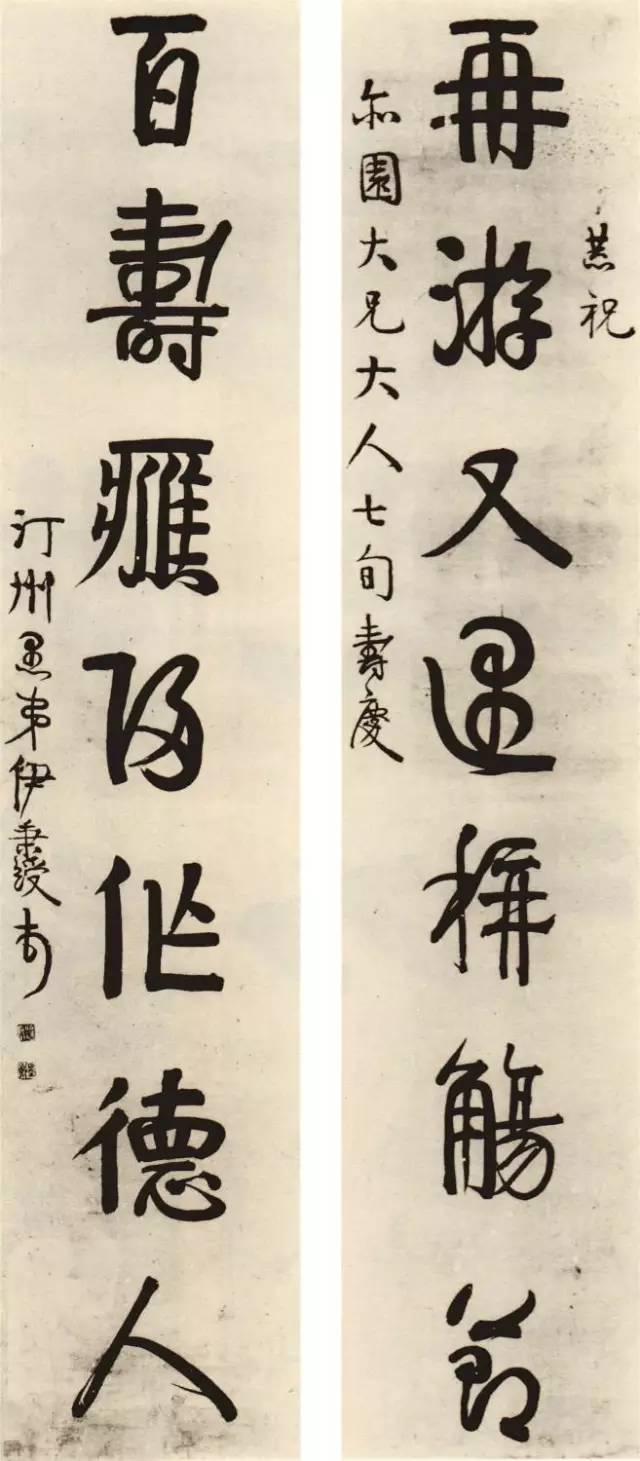 再游又遇稱觴節
恭祝
亦園大兄大人七旬壽慶
百壽應歸作德人
汀州愚弟伊秉綬書